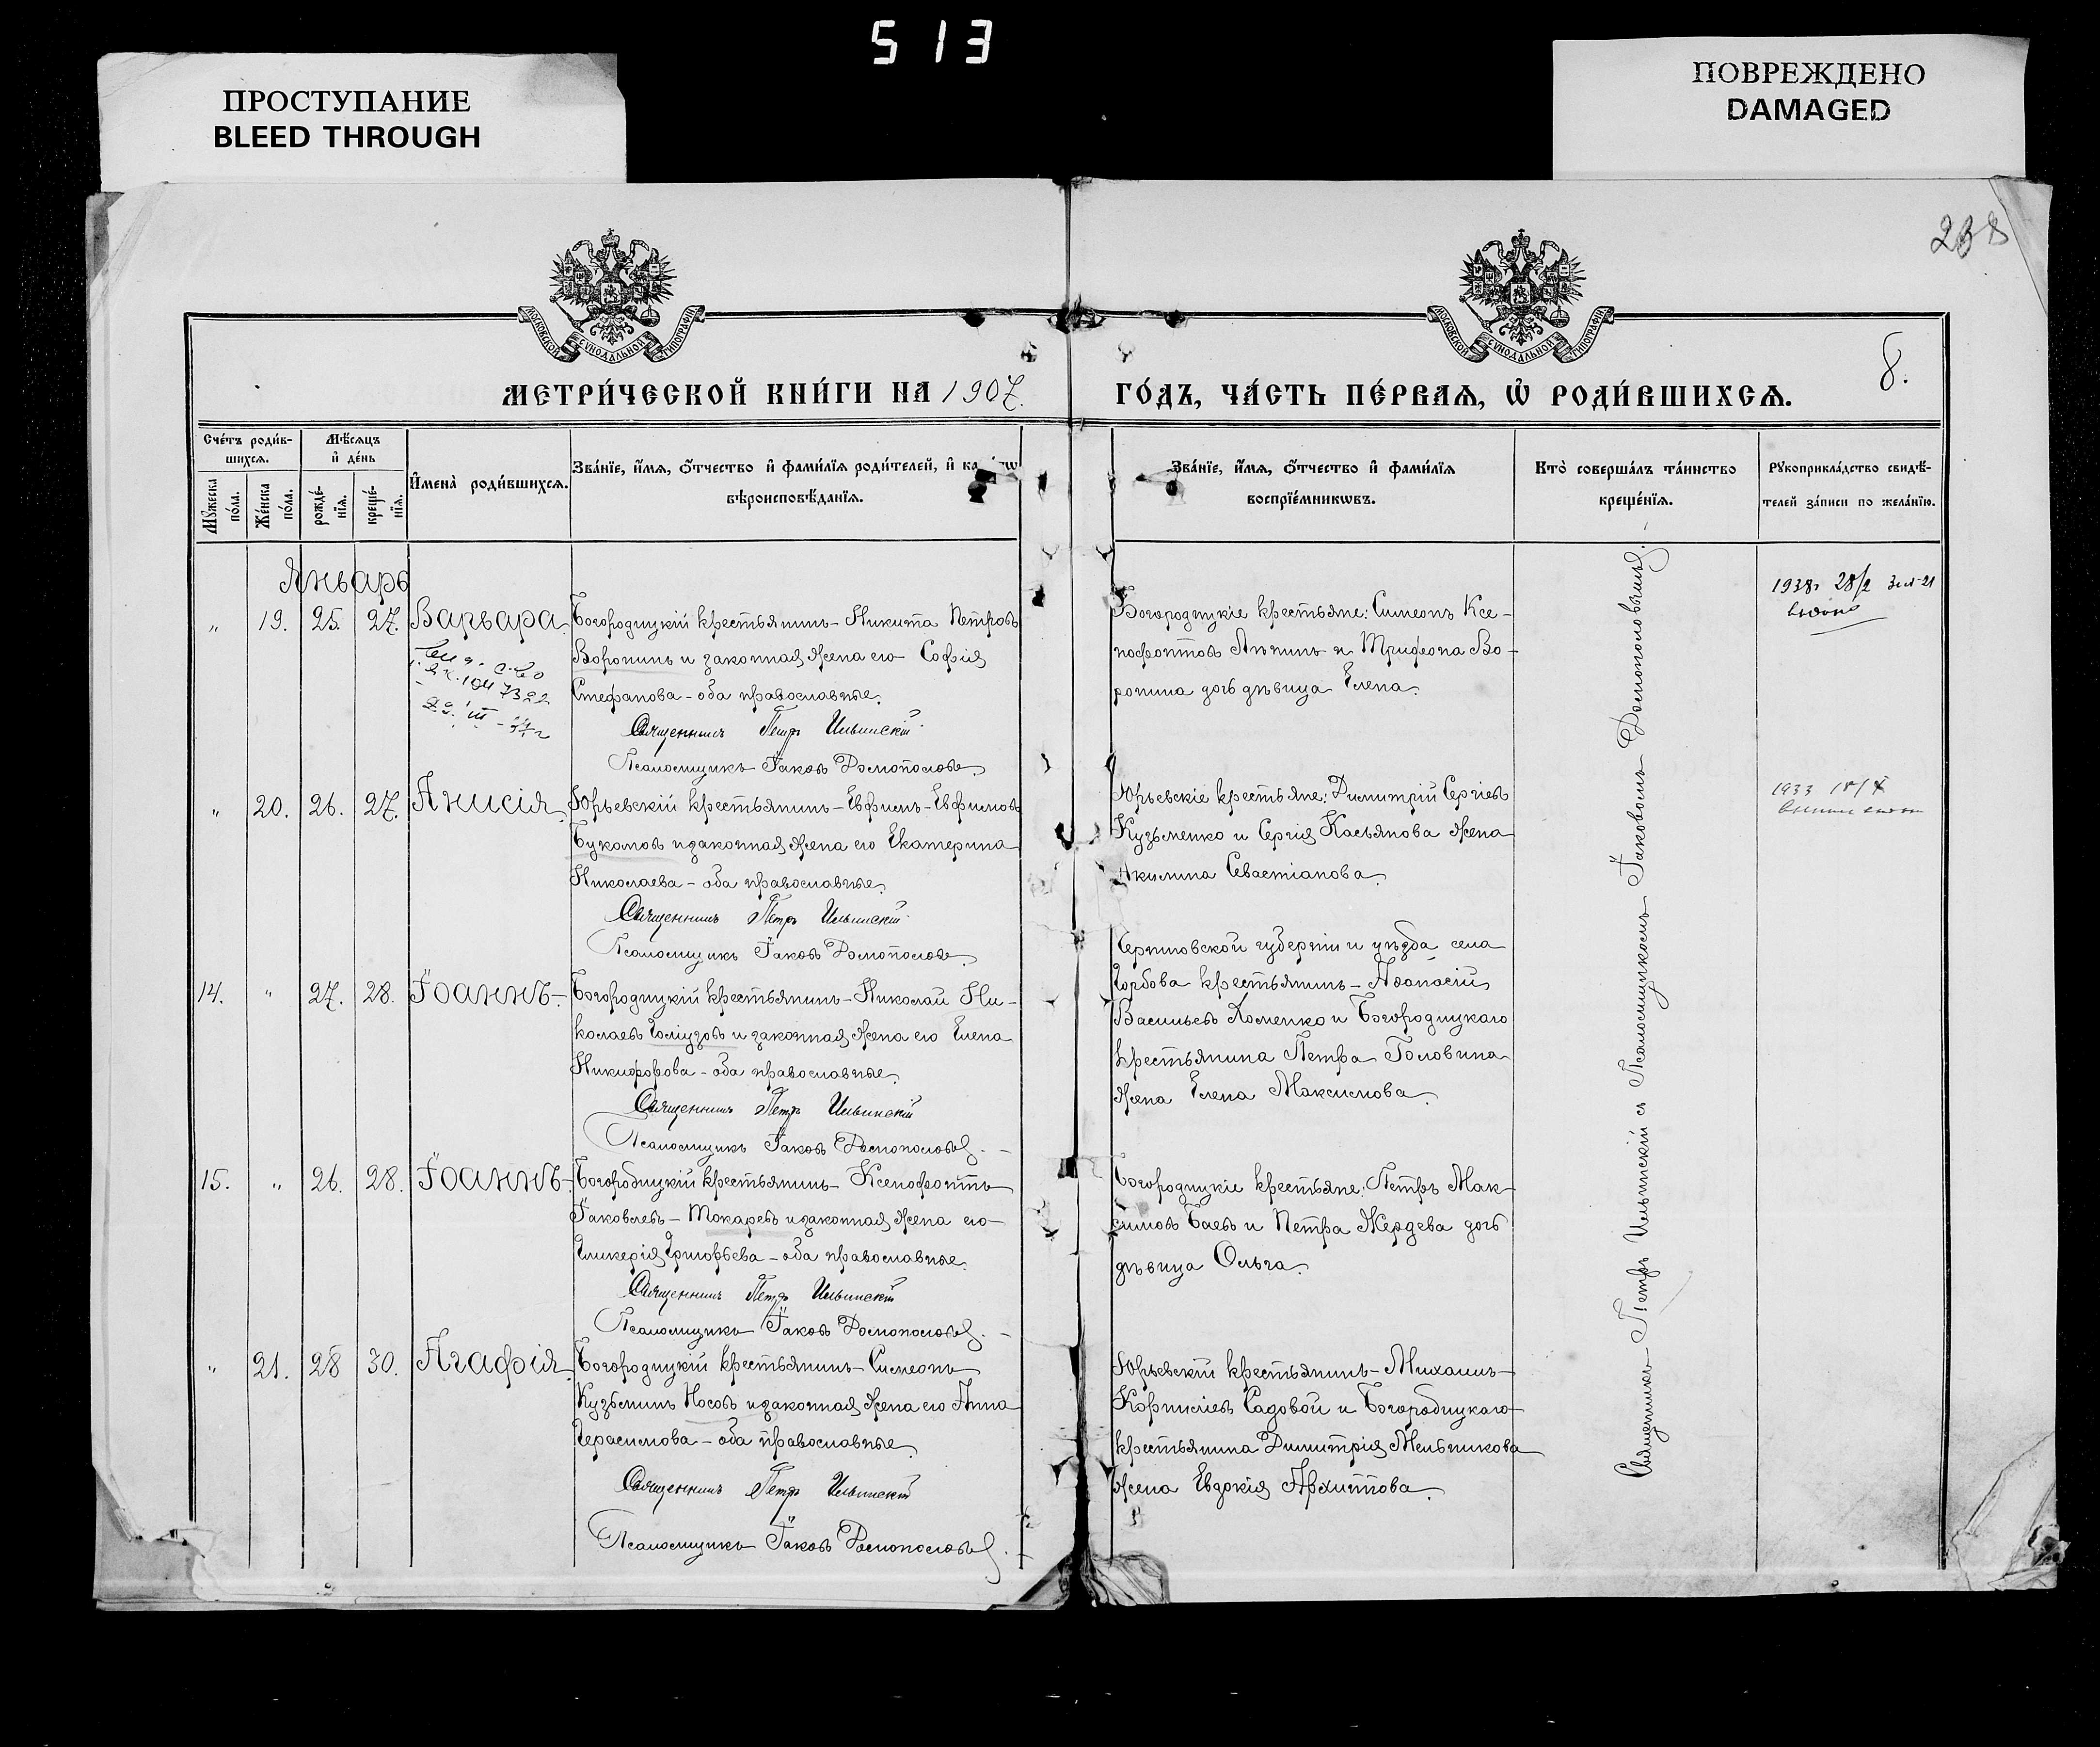 513
ПРОСТУПАНИЕ
BLEED THROUGH
ПОВРЕЖДЕНО
DAMAGED
238
МОСКОВСКОЙ СѴНОДАЛЬНОЙ ТИПОГРАФІИ
МОСКОВСКОЙ СѴНОДАЛЬНОЙ ТИПОГРАФІИ
8.
МЕТРИ́ЧЕСКОЙ КНИ́ГИ НА 1907.
ГО́ДЪ, ЧА́СТЬ ПЕ́РВАѦ, Ѡ҆ РОДИ́ВШИХСѦ.
Сче́тъ роди́в-
шихсѧ.
Мѣ́сѧцъ
и҆ де́нь
Мꙋ́жеска
по́ла.
Же́нска
по́ла.
рожде́-
нїѧ.
креще́-
нїѧ.
И҆мена̀ роди́вшихсѧ.
Зва́нїе, и҆́мѧ, ѻ҆́тчество и҆ фами́лїѧ роди́телей, и҆
вѣроисповѣ́данїѧ.
Зва́нїе, и҆́мѧ, ѻ҆́тчество и҆ фами́лїѧ
воспрїе́мникѡвъ.
Кто̀ соверша́лъ та́инство
креще́нїѧ.
Рꙋкоприкла́дство свидѣ́-
телей за́писи по жела́нїю.
Январь
„ 19. 25. 27. Варвара.
Богородицкій крестьянинъ - Никита Петровъ
Воронинъ и законная жена его София
Стефанова - оба православные.
Священникъ Петръ Ильинскій
Псаломщикъ Іаковъ Доспополовъ.
Богородицкіе крестьяне: Симеонъ Ксе-
нофонтовъ Анинъ и Трифона Во-
ронина дочь дѣвица Елена.
1938г 28/2
„ 20. 26. 27. Анисія.
Юрьевскій крестьянинъ - Евфимъ Евфимовъ
Букаловъ и законная жена его Екатерина
Николаева - оба православные.
Священникъ Петръ Ильинскій
Псаломщикъ Іаковъ
Юрьевскіе крестьяне: Димитрій Сергіевъ
Кузьменко и Сергія Касьянова жена
Акилина Севастіанова.
1933 18/
14. „ 27. 28. Іоаннъ.
Богородицкій крестьянинъ - Николай Ни-
колаевъ и законная жена его Елена
Никифорова - оба православные.
Священникъ Петръ Ильинскій
Псаломщикъ Іаковъ
Черниговской губерніи и уѣзда села
Горбова крестьянинъ - Аѳанасій
Васильевъ Хоменко и Богородицкаго
крестьянина Петра Головина
жена Елена Максимова.
15. „ 26. 28. Іоаннъ.
Богородицкій крестьянинъ - Ксенофонтъ
Іаковлевъ - Токаревъ и законная жена его
Гликерія Григорьева - оба православные.
Священникъ Петръ Ильинскій
Псаломщикъ Іаковъ
Богородицкіе крестьяне: Петръ Мак-
симовъ Баевъ и Петра Жердева дочь
дѣвица Ольга.
„ 21. 28 30. Агафія.
Богородицкій крестьянинъ - Симеонъ
Кузьминъ Носовъ и законная жена его Анна
Герасимова - оба православные.
Священникъ Петръ Ильинскій
Псаломщикъ Іаковъ
Юрьевскій крестьянинъ - Михаилъ
Корниліевъ Садовой и Богородицкаго
крестьянина Димитрія Мельникова
жена Евдокія Архиппова.
Священникъ Петръ Ильинскій съ Псаломщикомъ Іаковомъ